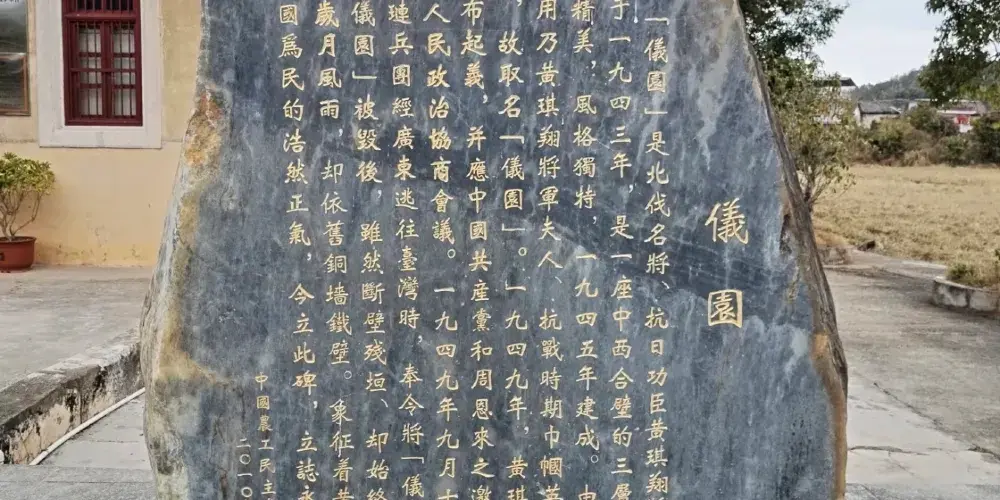 儀園
「儀園」是北伐名將、抗日功臣黃琪翔
于一九四三年，是一座中西合璧的三層
精美，風格獨特，一九四五年建成。由
用乃黃琪翔將軍夫人、抗戰時期巾幗英
，故取名「儀園」。「一九四九年，黃琪
布起義，并應中國共産黨和周恩來之邀
人民政治協商會議。一九四九年九月十
璉兵團經廣東逃往臺灣時，奉令將「儀
儀園」被毀後，雖然斷壁殘垣、却始終
歲月風雨，却依舊銅墻鐵壁。象征着黃
國爲民的浩然正氣，今立此碑，立誌永
中國農工民主
二〇一〇